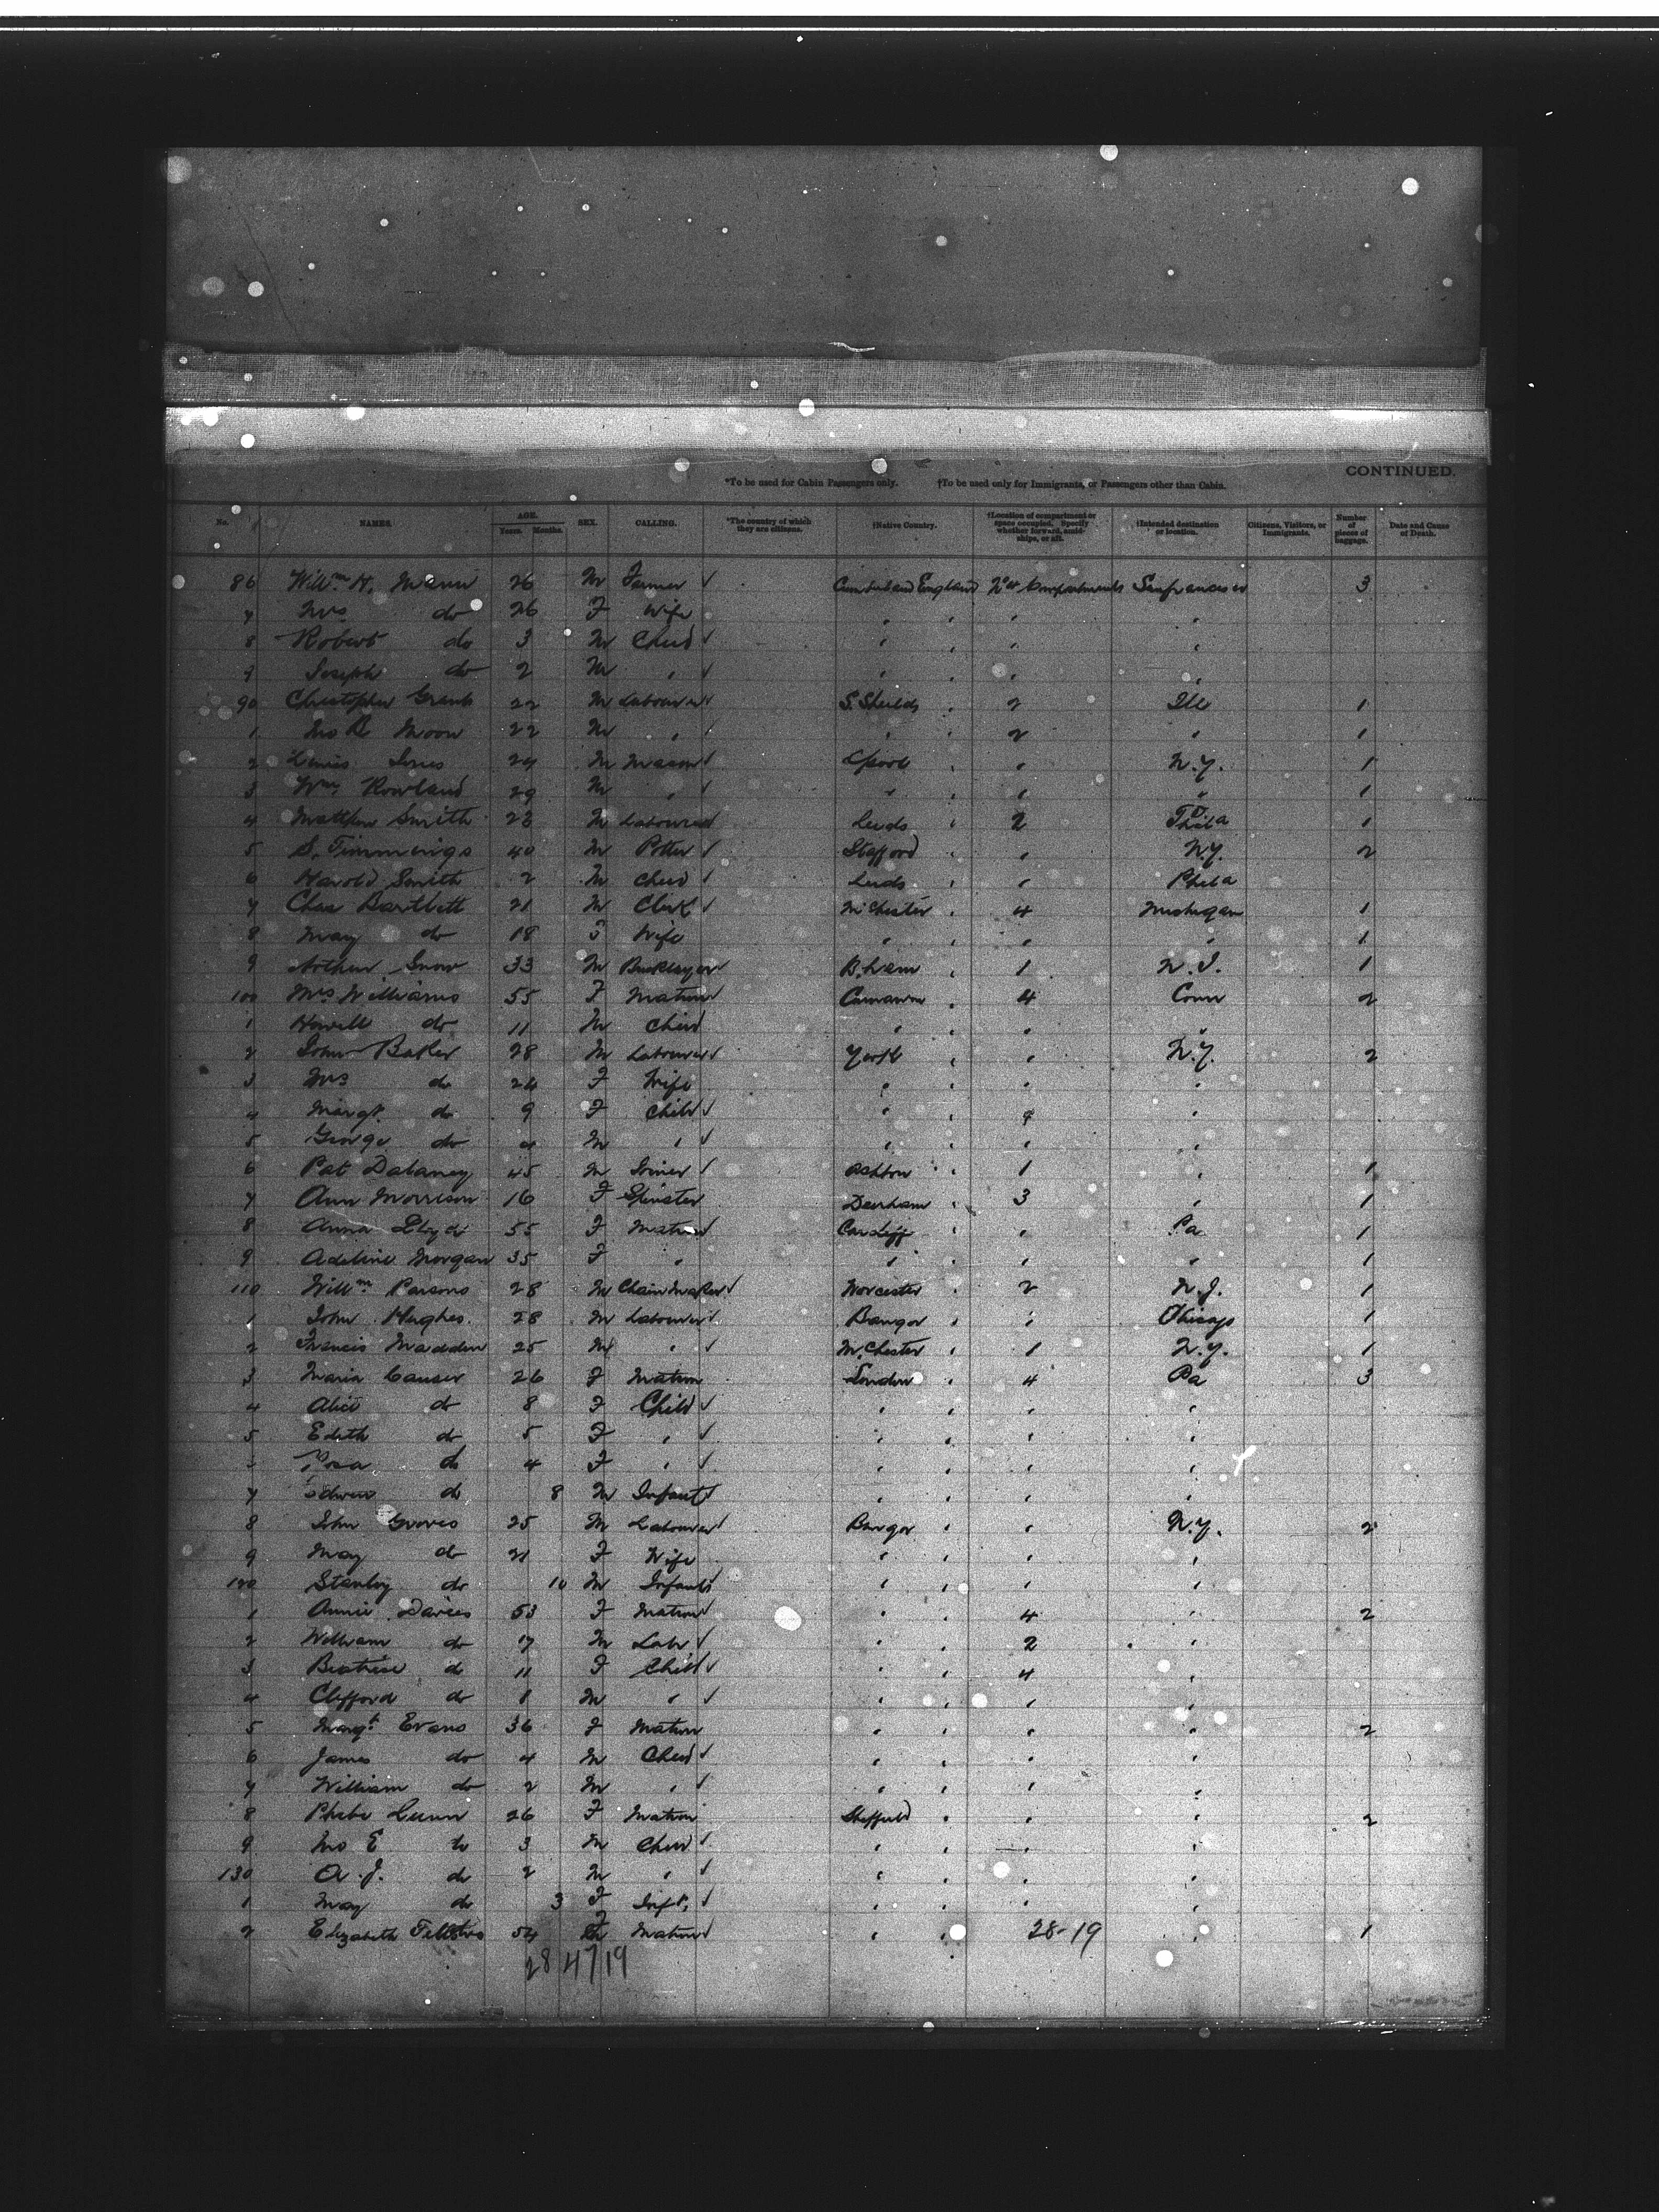 CONTINUED.
*To be used for Cabin Passengers only. †To be used only for Immigrants, or Passengers other than Cabin.
No. NAMES. AGE. Years. Months. SEX. CALLING. *The country of which they are citizens. †Native Country. †Location of compartment or space occupied. Specify whether forward, amidships, or aft. †Intended destination or location. Citizens, Visitors, or Immigrants. Number of pieces of baggage. Date and Cause of Death.
86 Willm H. Mann 26 M Farmer ✓ Cumberland England No 4 Compartments Sanfrancisco 3
7 Mrs do 26 F Wife " " " "
8 Robert do 3 M Child ✓ " " " "
9 Joseph do 2 M " ✓ " " " "
90 Christopher Grant 22 M Labourer ✓ S. Shields " 2 Ill 1
1 Jno R Moon 22 M " ✓ " " 2 " 1
2 24 M Mason ✓ L'pool " " N.Y. 1
3 Wm Rowland 29 M " ✓ " " " " 1
4 Matthew Smith 23 M Labourer ✓ Leeds " 2 Phila 1
5 S. Timmings 40 M Potter ✓ Stafford " " N.Y. 2
6 Harold Smith 2 M Child ✓ Leeds " " Phila
7 Chas Bartlett 21 M Clerk ✓ M'chester " 4 Michigan 1
8 May do 18 F Wife " " " " 1
9 Arthur Snow 33 M Bricklayer ✓ B.ham " 1 N.J. 1
100 Mrs Williams 55 F Matron ✓ Carnarvon " 4 Conn 2
1 Howell do 11 M Child " " " "
2 John Baker 28 M Labourer ✓ York " " N.Y. 2
3 Mrs do 24 F Wife " " " "
4 Margt do 9 F Child ✓ " " 4 "
5 George do 4 M " ✓ " " " "
6 Pat Dalaney 45 M Joiner ✓ Ashton " 1 " 1
7 Ann Morrison 16 F Spinster Durham " 3 " 1
8 Anna Lloyd 55 F Matron ✓ Cardiff " " Pa 1
9 Adeline Morgan 35 F " " " " " 1
110 Willm Parsons 28 M Chain Maker ✓ Worcester " 2 N.J. 1
1 John Hughes 28 M Labourer ✓ Bangor " " Chicago 1
2 Francis Madden 25 M " ✓ M.Chester " 1 N.Y. 1
3 Maria Causer 26 F Matron London " 4 Pa 3
4 Alice do 8 F Child ✓ " " " "
5 Edith do 5 F " ✓ " " " "
Rosa do 4 F " ✓ " " " "
7 Edwin do 8 M Infant ✓ " " " "
8 John Groves 25 M Labourer ✓ Bangor " " N.Y. 2
9 May do 21 F Wife " " " "
120 Stanley do 10 M Infant ✓ " " " "
1 Annie Davies 53 F Matron ✓ " " 4 " 2
2 William do 17 M Labr ✓ " " 2 "
3 Beatrice do 11 F Child ✓ " " 4 "
4 Clifford do 8 M " ✓ " " " "
5 Margt Evans 36 F Matron " " " " 2
6 James do 4 M Child ✓ " " " "
7 William do 2 M " ✓ " " " "
8 Phebe Lunn 26 F Matron Sheffield " " " 2
9 Jno E do 3 M Child ✓ " " " "
130 A. J. do 2 M " ✓ " " " "
1 May do 3 F Inft. ✓ " " " "
2 Elizabeth 54 F Matron ✓ " " 28-19 " 1
28/47/19